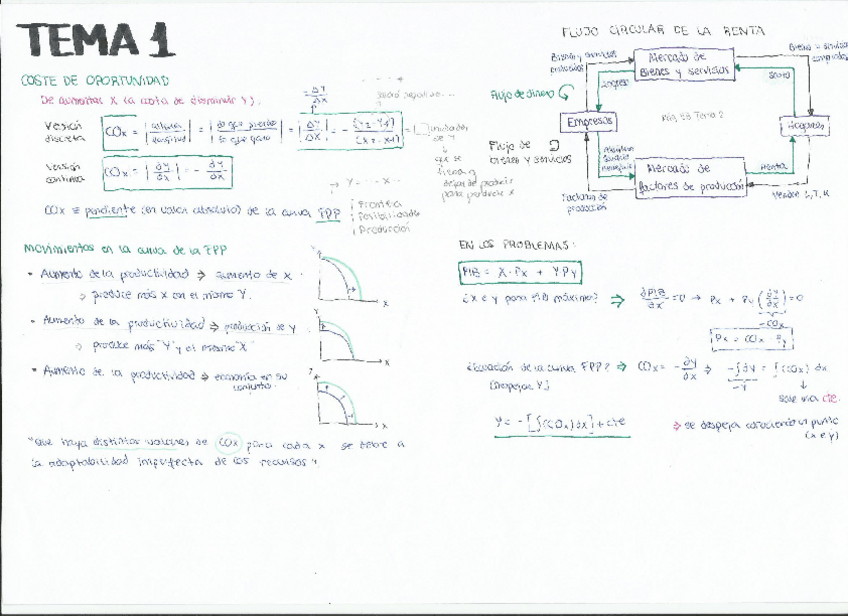 TEMA 1
COSTE DE OPORTUNIDAD
De aumentar X (a costa de disminuir Y).
Versión discreta
COx = | altura / longitud | = | lo que pierdo / lo que gano | = | ΔY / ΔX | = - (Y2 - Y1) / (X2 - X1) =
unidades de Y
que se
dejan de producir
para producir X
= ΔY / ΔX
Versión continua
COx = | ∂Y / ∂X | = - ∂Y / ∂X
COx = pendiente (en valor absoluto) de la curva FPP
Frontera
Posibilidades
Producción
MOVIMIENTOS EN LA CURVA DE LA FPP
• Aumento de la productividad ⇒ aumento de X
⇒ produce más X con el mismo Y.
• Aumento de la productividad ⇒ producción de Y
⇒ produce más "Y" y el mismo "X"
• Aumento de la productividad ⇒ economía en su conjunto.
"Que haya distintos valores de COx para cada x se debe a
la adaptabilidad imperfecta de los recursos"
FLUJO CIRCULAR DE LA RENTA
Bienes y servicios
producidos
Mercado de
Bienes y servicios
Bienes y servicios
comprados
Ingreso
Gasto
Flujo de dinero
Empresas
Pág 53 Tema 2
Hogares
Flujo de
bienes y servicios
Mercado de
factores de producción
Renta
Factores de
producción
EN LOS PROBLEMAS:
PIB = X·Px + Y·Py
¿X e Y para PIB máximo? ⇒ ∂PIB / ∂x = 0 → Px + Py (∂Y / ∂x) = 0
-COx
Px = COx · Py
¿Ecuación de la curva FPP? ⇒ COx = - ∂Y / ∂x ⇒ -∫∂Y = ∫(COx) dx
(Despejar Y)
-Y
sale una cte.
Y = -[∫(COx)dx] + cte
⇒ se despeja conociendo un punto
(x e y)